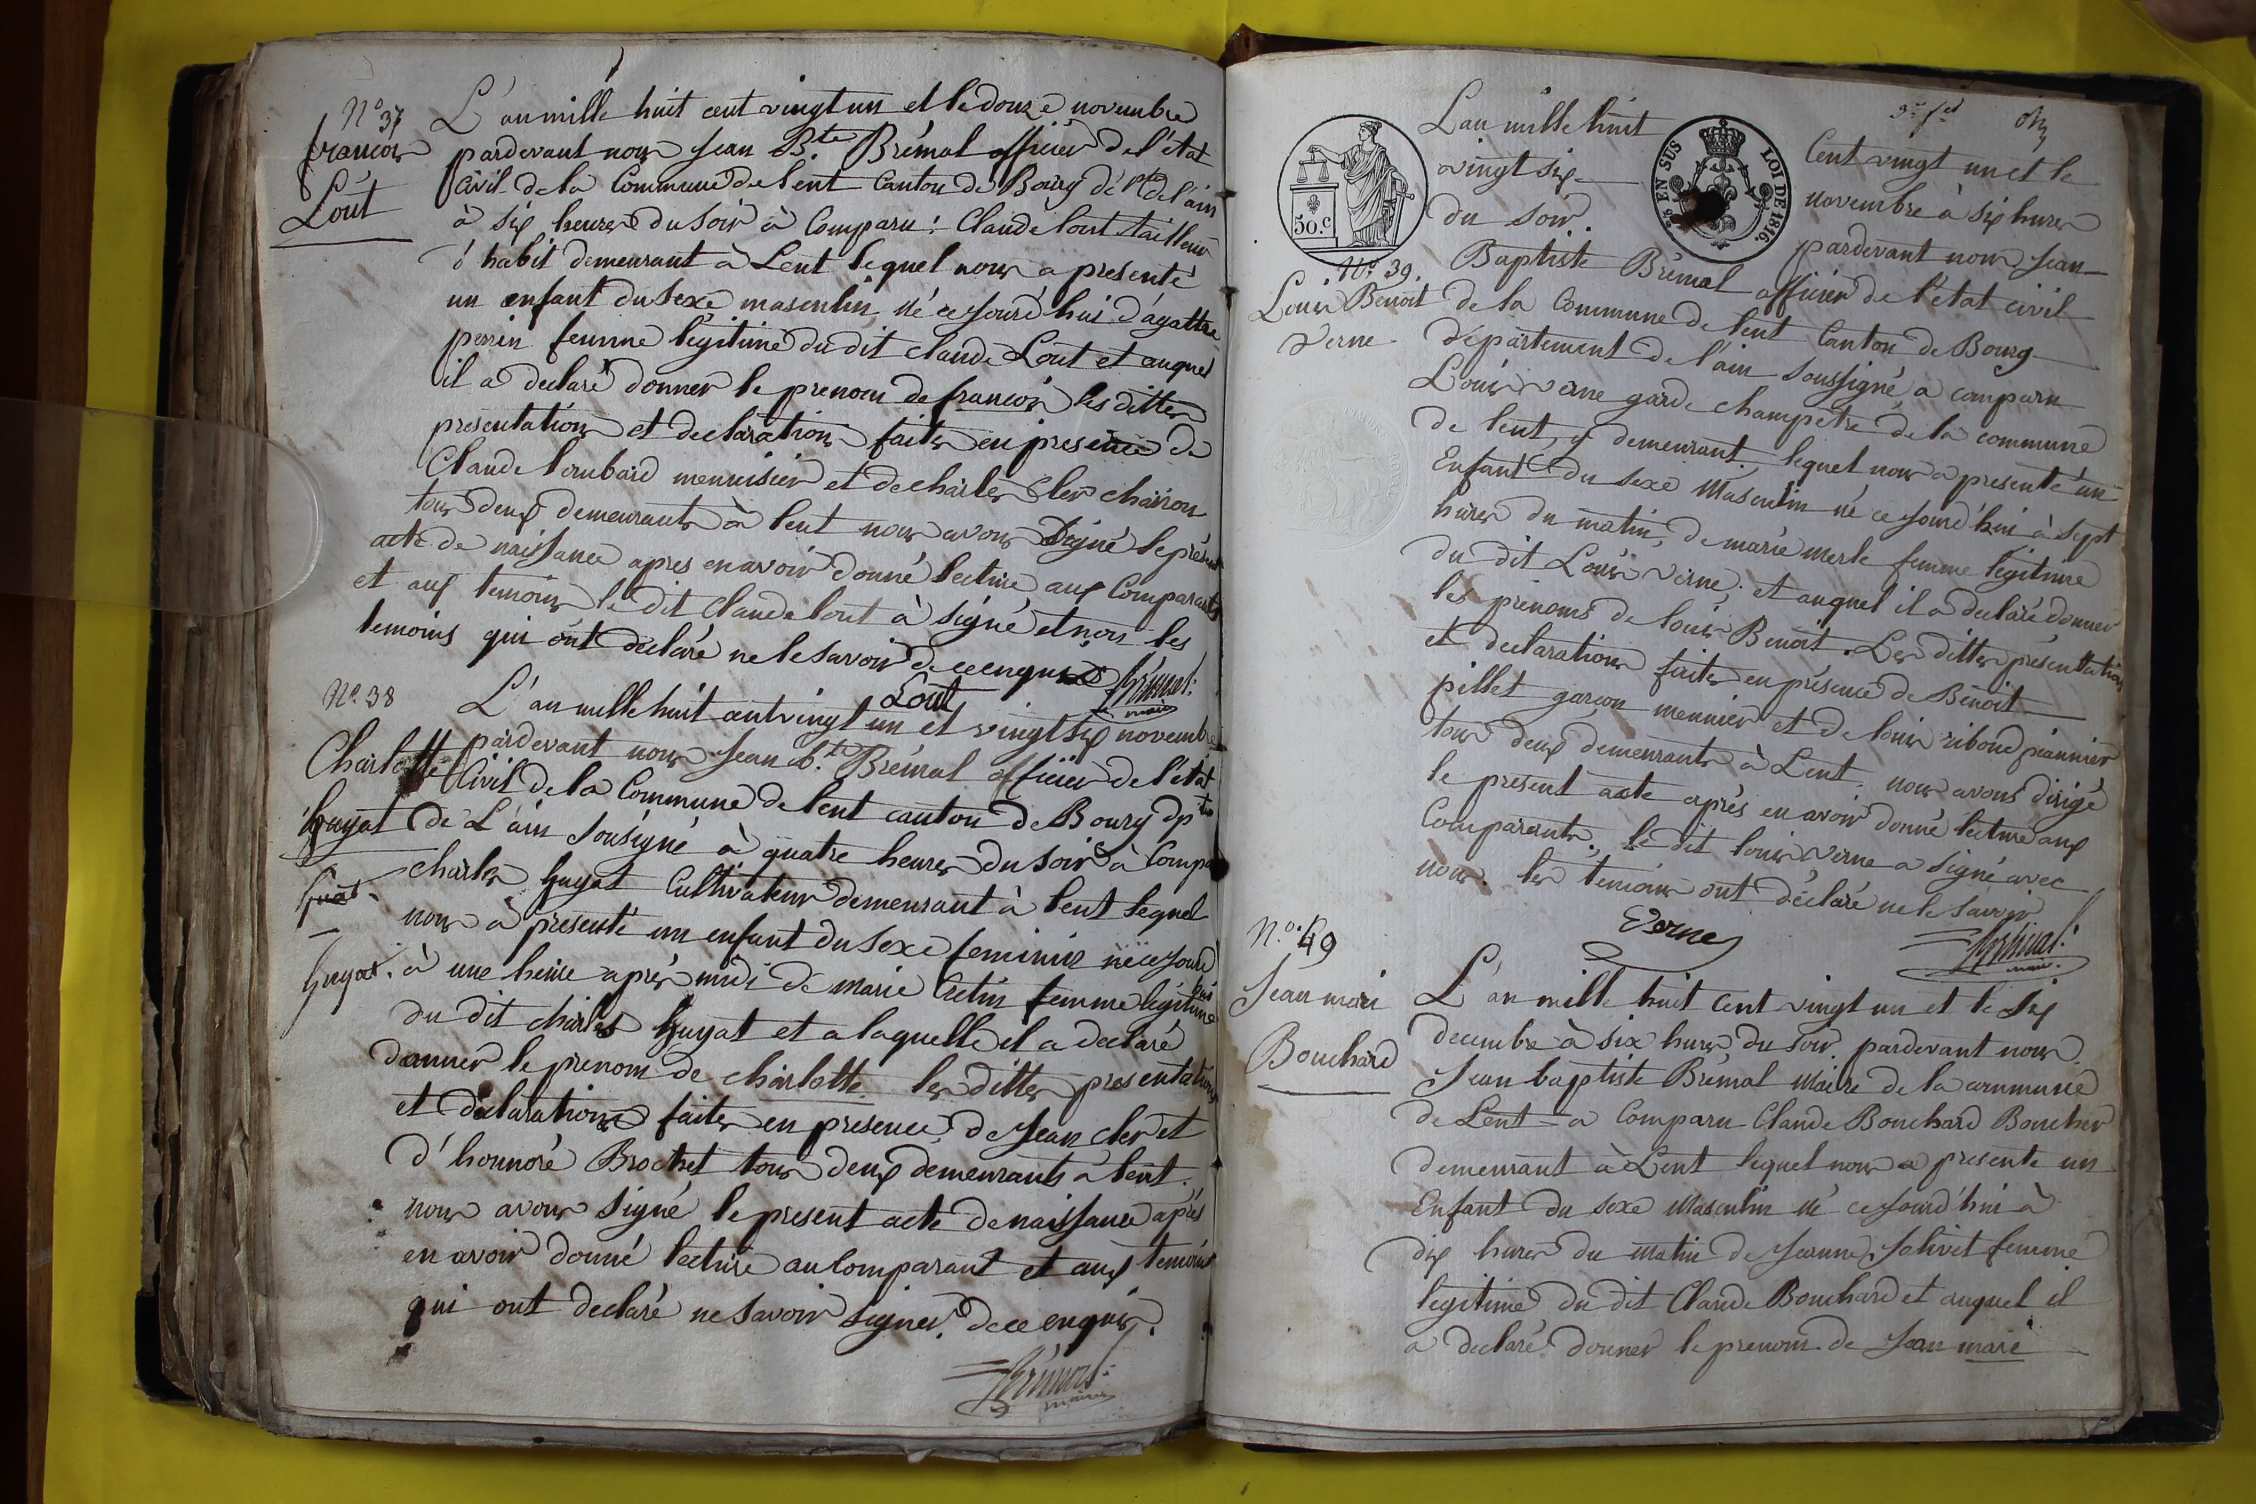 N.o 37
françois
Lout
L'an mille huit cent vingt un et le douze novembre
pardevant nous Jean B.te Brémal officier de l'état
Civil de la Commune de lent Canton de Bourg dép.t de l'ain
à six heures du soir à Comparu : Claude lout tailleur
d'habit demeurant à Lent lequel nous a présenté
un enfant du sexe masculin né ce jourd'hui d'agatte
perrin femme légitime du dit claude Lout et auquel
il a declaré donner le prenom de françois les dittes
presentations et declarations faites en presence de
Claude lombard menuisier et de charles Cler charron
tous deux demeurants à lent nous avons signé le présent
acte de naissance apres en avoir donné lecture aux Comparants
et aux temoins le dit claude lout à signé et non les
temoins qui ont déclaré ne le savoir de ce enquis
Lout
Brémal
maire
N.o 38
Charlotte
Guyat
Guat
Guyat.
L'an mille huit cent vingt un et vingt six novembre
pardevant nous Jean b.te Brémal officier de l'état
Civil de la Commune de lent canton de Bourg dp.tm
de L'ain sousigné à quatre heures du soir à Compa
charles Guyat Cultivateur demeurant à lent lequel
nous à présenté un enfant du sexe feminin né ce jourd hui
à une heure après midi de marie Cretin femme légitime
du dit charles Guyat et a laquelle il a declaré
donner le prenom de charlotte. les dittes presentations
et déclarations faites en presence de Jean cler et
d'honnoré Brochet tous deux demeurants à lent.
nous avons signé le present acte de naissance après
en avoir donné lecture au Comparant et aux temoins
qui ont declaré ne savoir signer. de ce enquis.
Brémal
maire
L'an mille huit Cent vingt un et le
vingt six novembre à six heures
du soir. pardevant nous Jean
50.c
EN SUS
LOI DE 1816.
N.o 39.
Louis Benoit
Verne
Baptiste Brémal officier de l'état civil
de la Commune de lent Canton de Bourg
Département de l'ain soussigné a comparu
Louis verne garde champetre de la commune
de lent, y demeurant. lequel nous a présenté un
Enfant du sexe Masculin né ce jourd'hui à sept
heures du matin, de marie merle femme légitime
du dit Louis verne, et auquel il a declaré donner
les prénoms de louis Benoit. Les dittes présentations
et declarations faites en présence de Benoit
pillet garçon meunier et de louis riboud
tous deux demeurants à Lent. nous avons dirigé
le present acte après en avoir donné lecture aux
Comparants. le dit louis verne a signé avec
nous. les temoins ont déclaré ne le savoir
Verne
Brémal
maire
N.o 40
Jean mari
Bouchard
L'an mille huit cent vingt un et le six
decembre à six heures du soir. pardevant nous
Jean baptiste Brémal Maire de la commune
de Lent a Comparu Claude Bouchard Boucher
demeurant à Lent lequel nous a presenté un
Enfant du sexe Masculin né ce jourd'hui à
dix heures du matin de Jeanne Jolivet femme
légitime du dit Claude Bouchard et auquel il
a declaré donner le prenom de Jean mari